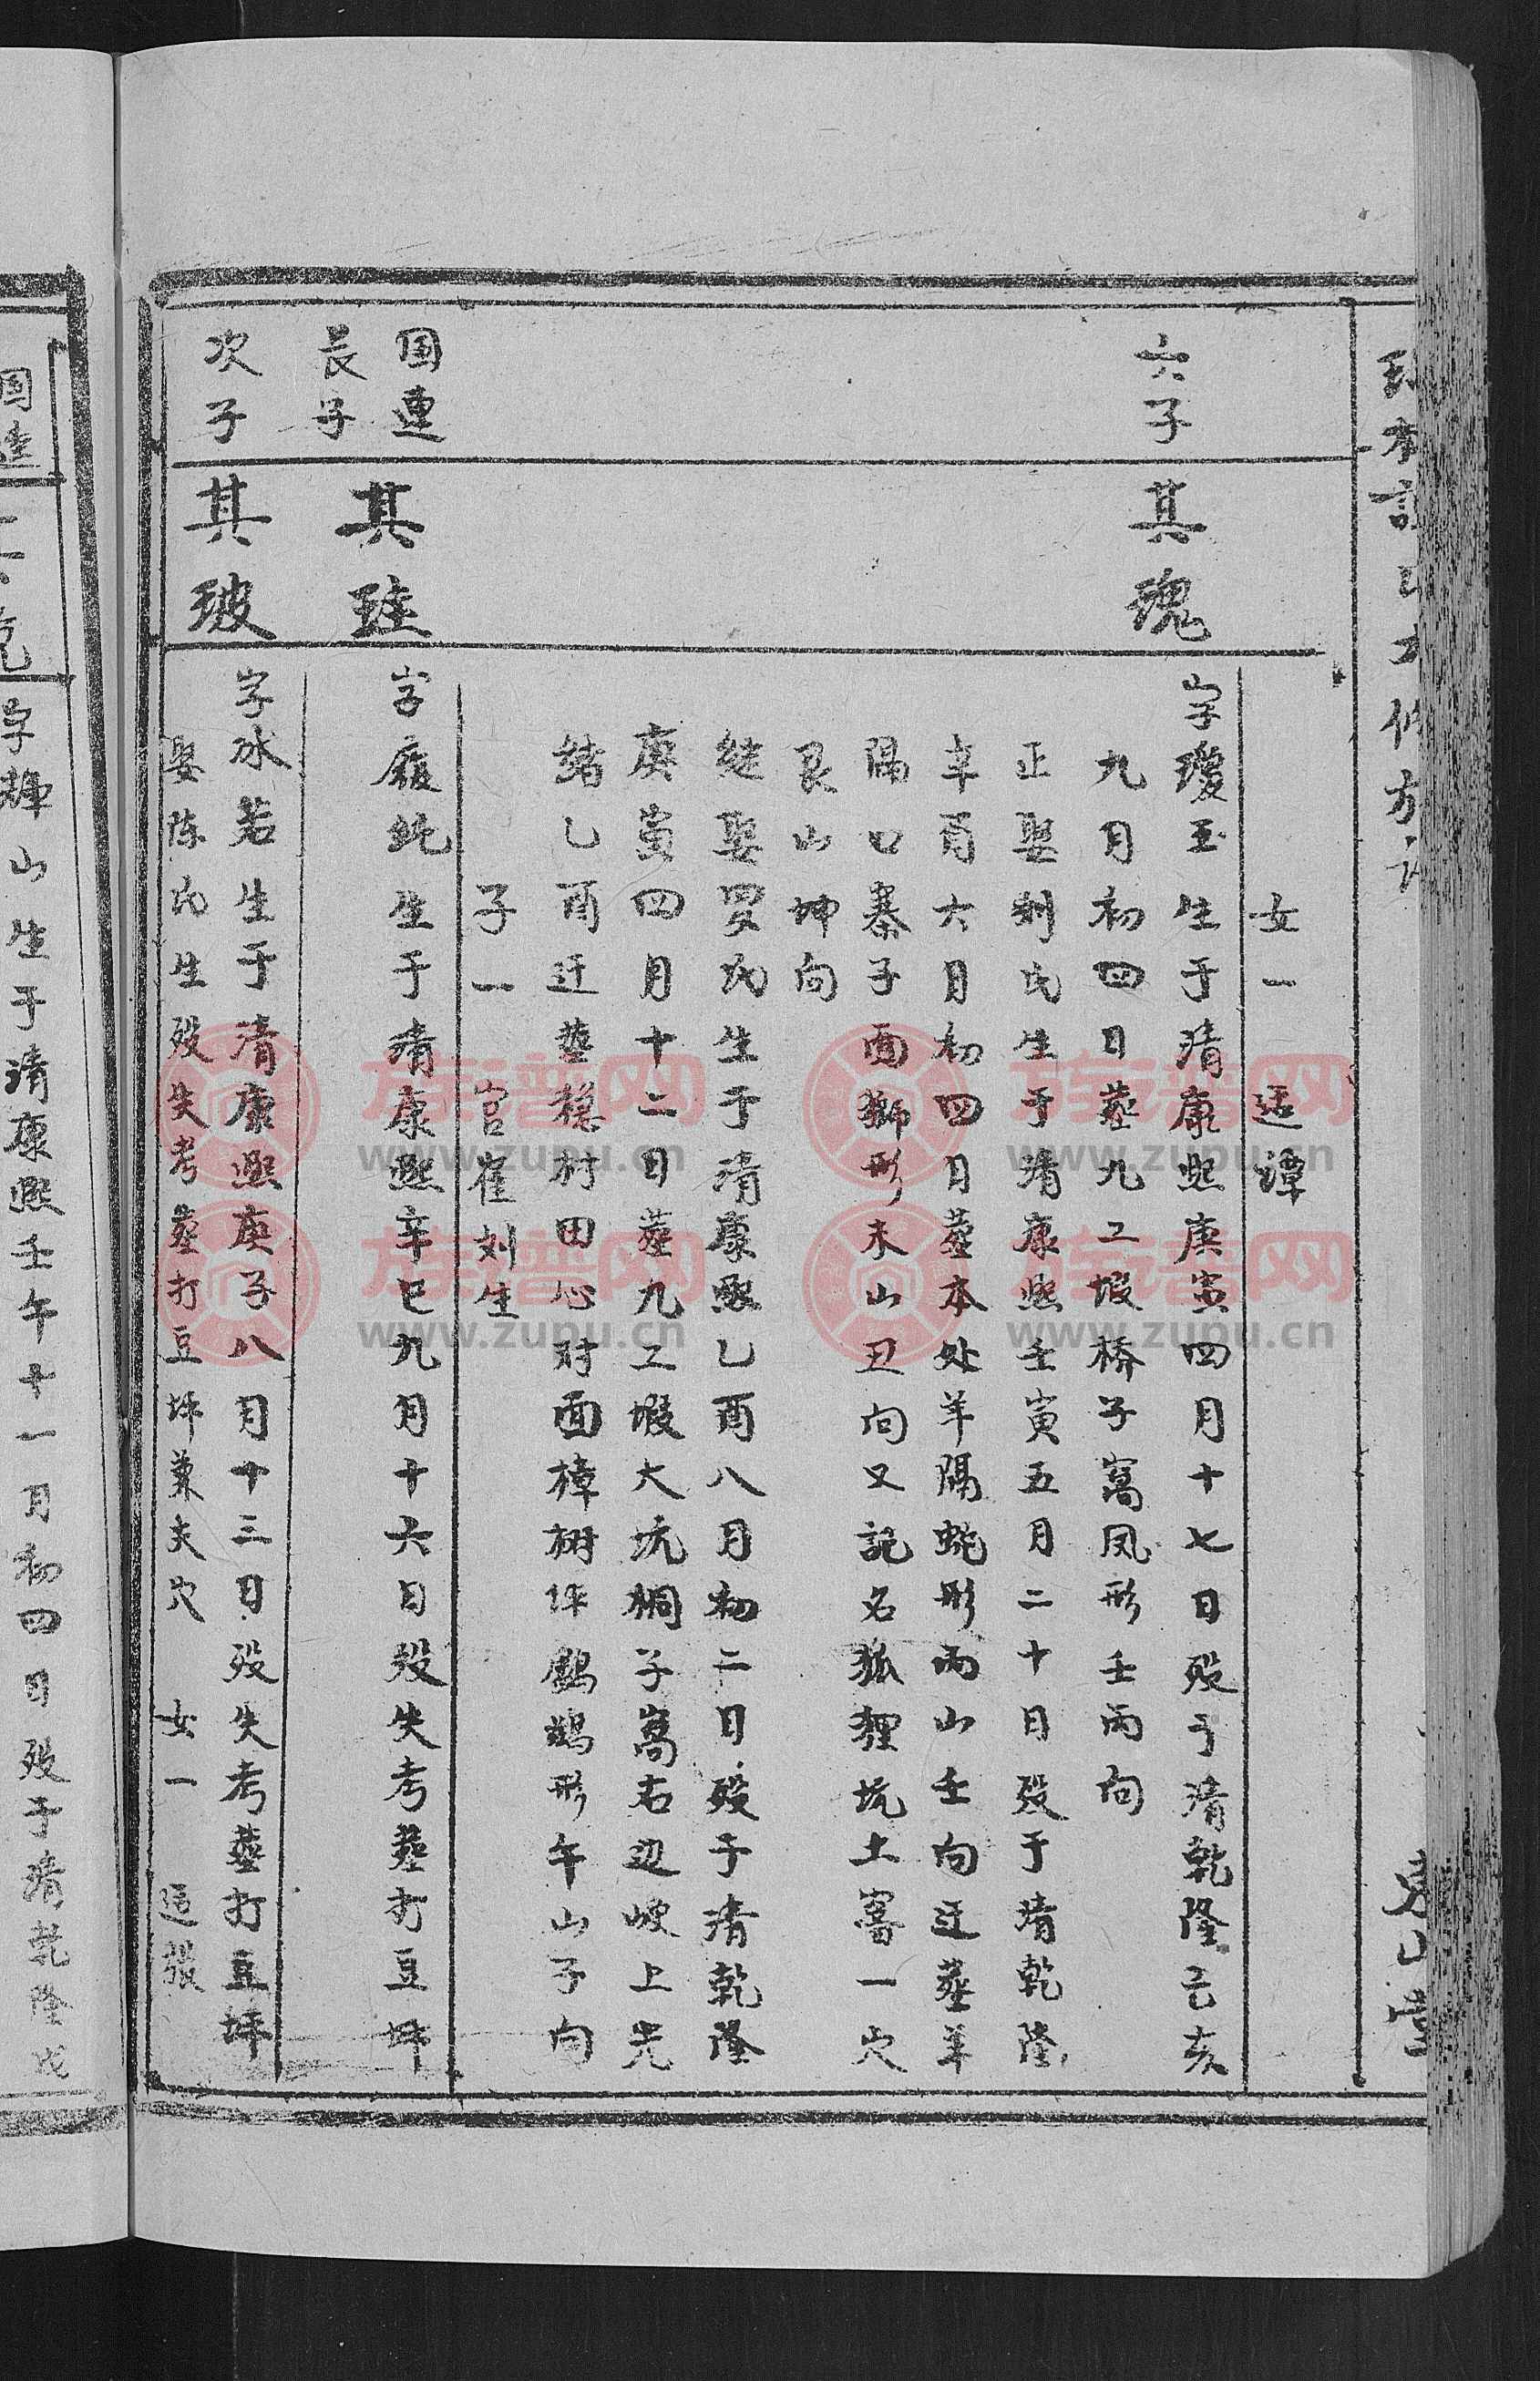 女一 适譚
六子
其瑰
字瓊玉生于清康熙庚寅四月十七日殁于清乾隆己亥
九月初四日塟九工塅桥子窩凤形壬丙向
正娶刘氏生于清康熙壬寅五月二十日殁于清乾隆
辛酉六月初四日塟本处羊隔蛇形丙山壬向迁塟羊
隔口寨子面獅形未山丑向又記名狐狸坑土窖一穴
艮山坤向
继娶罗氏生于清康熙乙酉八月初二日殁于清乾隆
庚寅四月十二日塟九工塅大坑桐子窩右边岐上光
緒乙酉迁塟穩村田心对面樟树坪鸕鹚形午山子向
子一 宫崔刘生
国連
長子
其珪
字嚴純生于清康熙辛巳九月十六日殁失考塟打豆坪
次子
其玻
字冰若生于清康熙庚子八月十三日殁失考塟打豆坪
娶陈氏生殁失考塟打豆坪兼夫穴 女一 适張
字輝山生于清康熙壬午十一月初四日殁于清乾隆戊
族譜网
www.zupu.cn
族譜网
www.zupu.cn
族譜网
www.zupu.cn
族譜网
www.zupu.cn